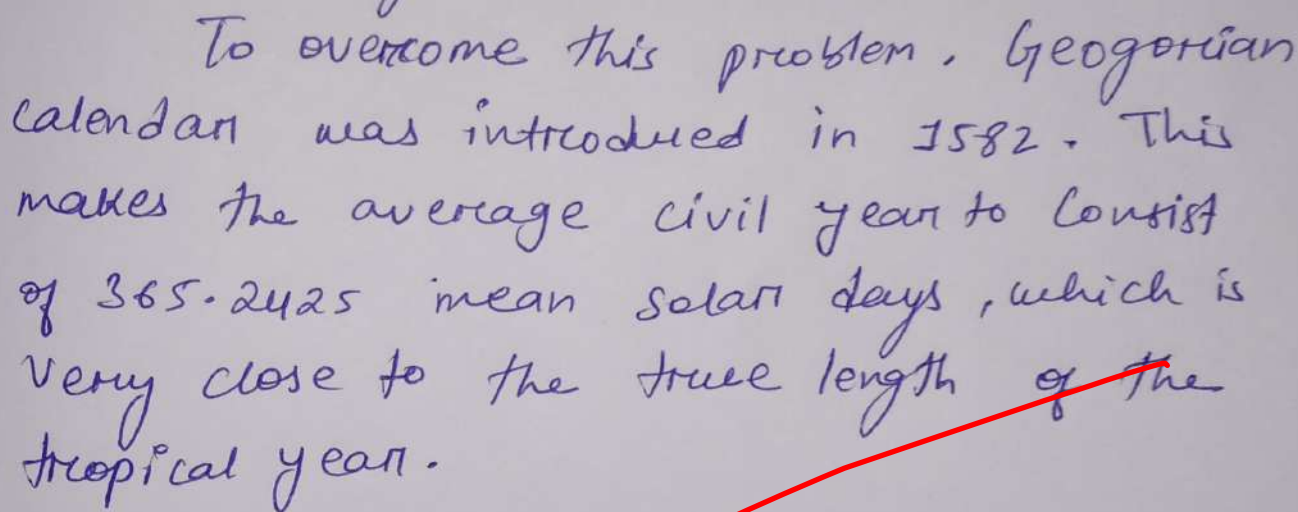 To overcome this problem. Geogorian
Calendar was introdued in 1582. This
makes the average civil year to Consist
of 365.2425 mean solar days, which is
very close to the true length of the
tropical year.